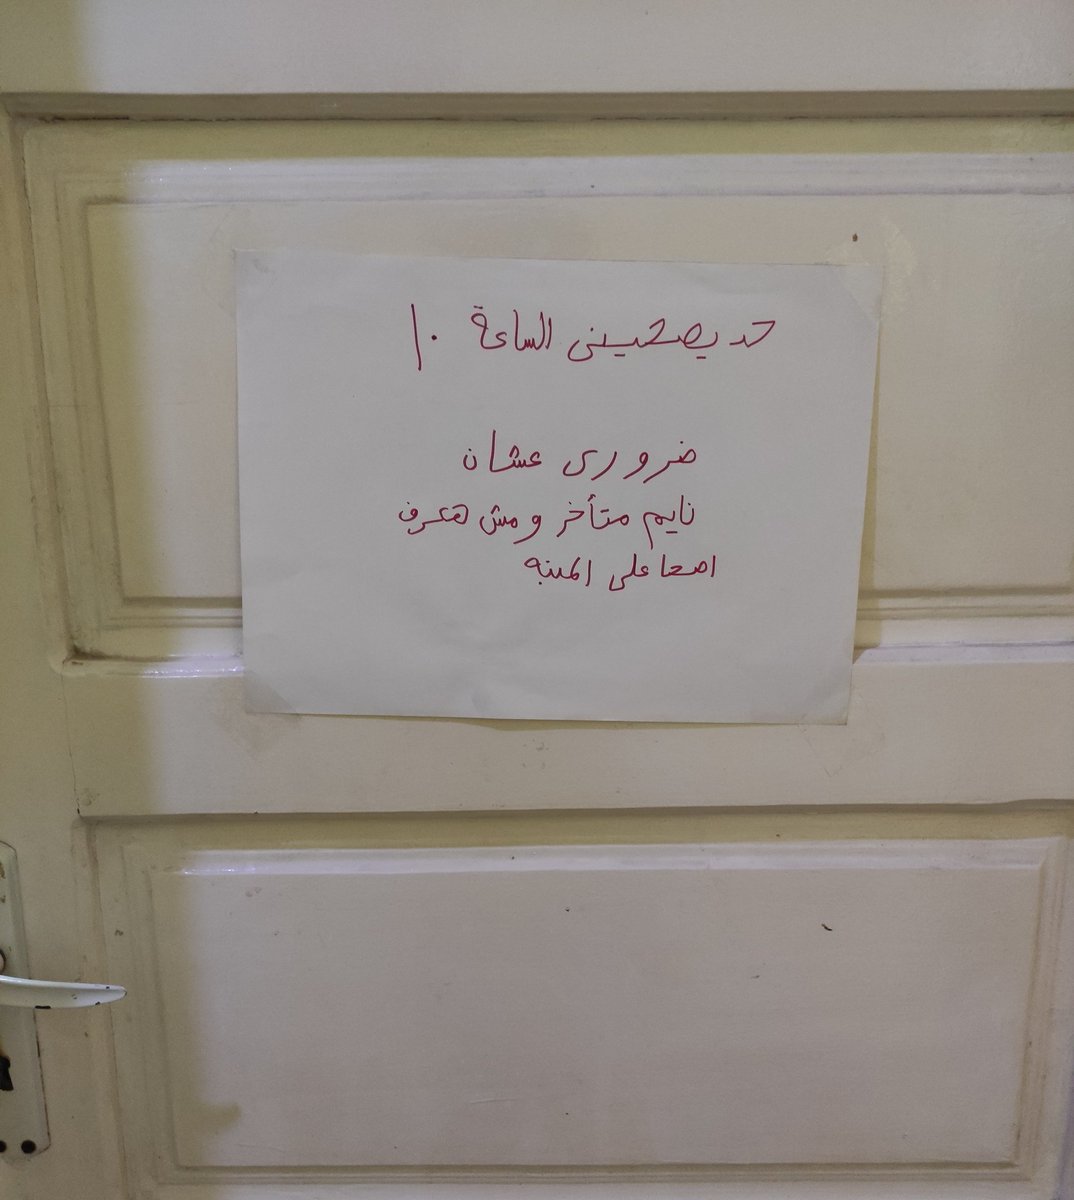 حد يصحينى الساعة ١٠
ضرورى عشان
نايم متأخر ومش هعرف
اصحا على المنبه